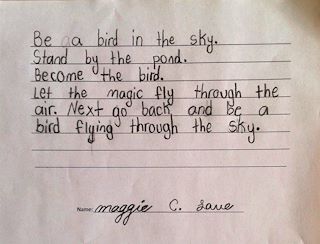 Be a bird in the sky.
Stand by the pond.
Become the bird.
Let the magic fly through the
air. Next go back and be a
bird flying through the sky.
Name: maggie C.